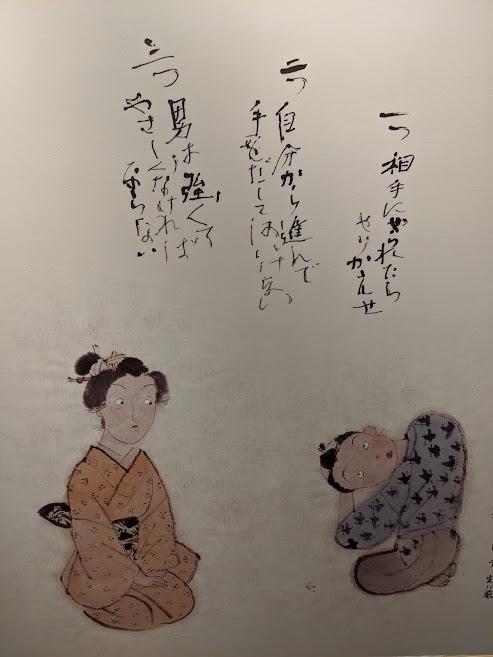 一つ 相手にやられたら
やりかえせ
二つ 自分から進んで
手をだしてはいけない
三つ
男は強くて
やさしくなければ
ならない